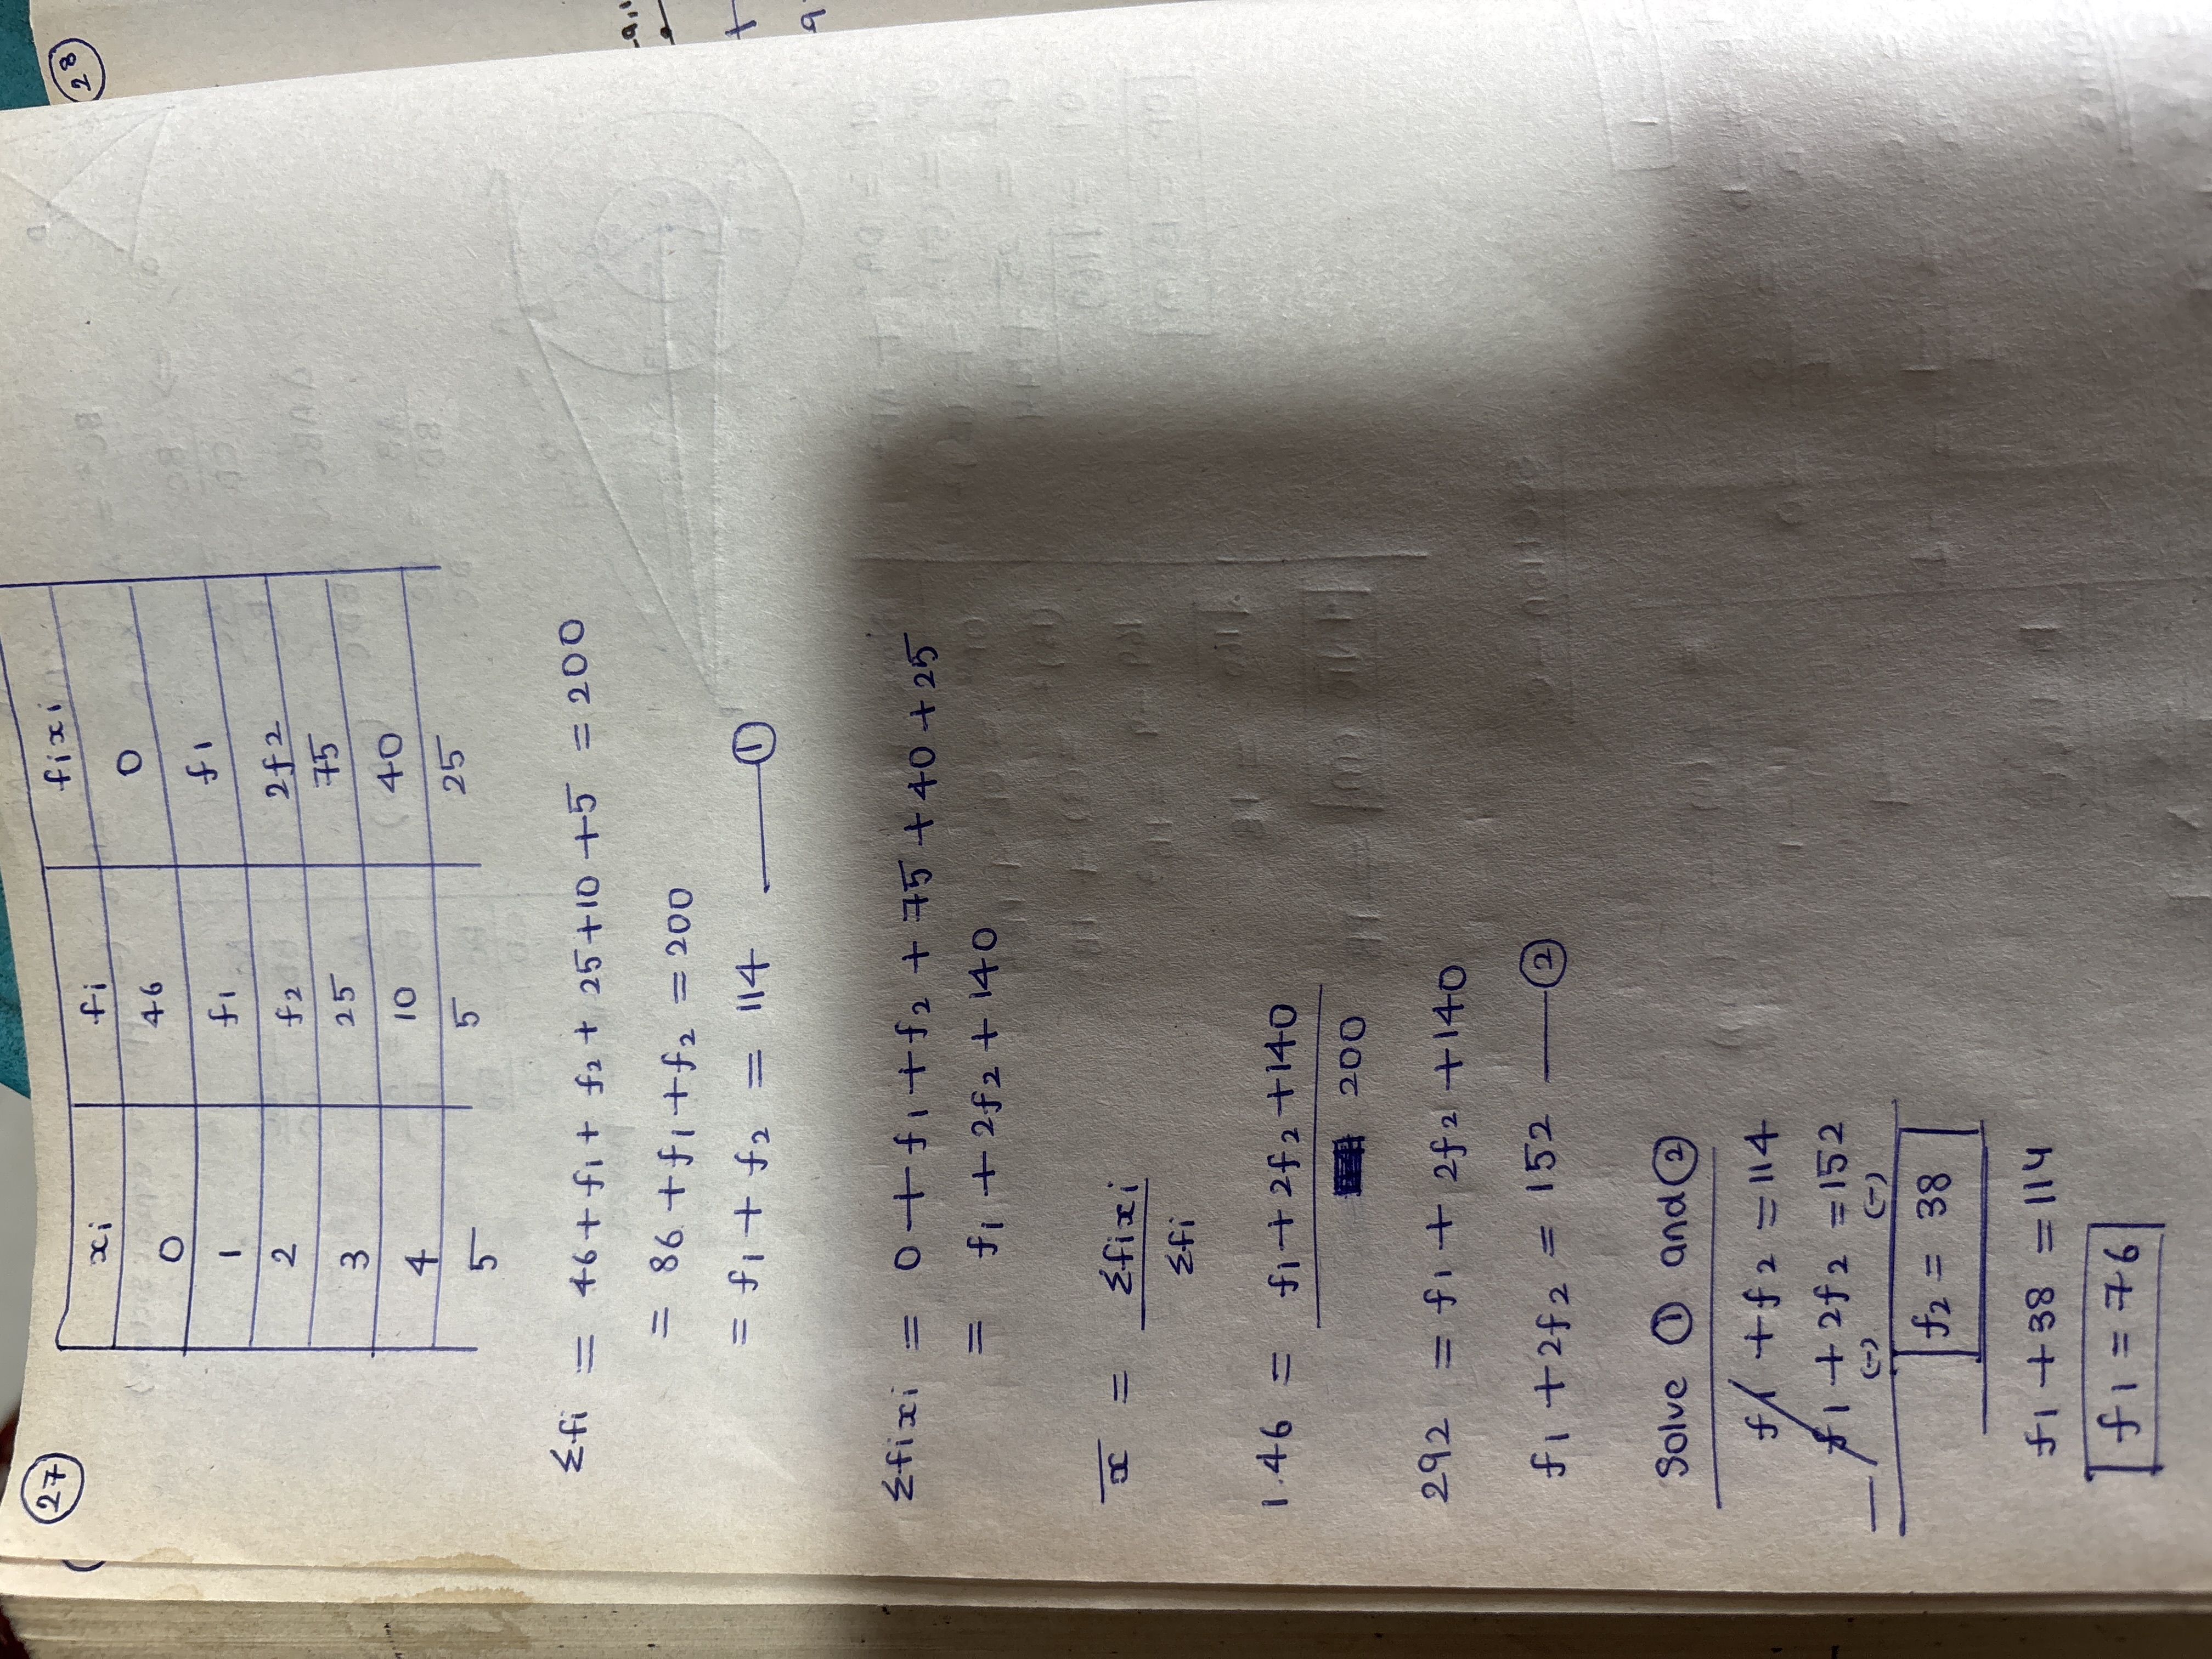 27
xi fi fixi
0 46 0
1 f1 f1
2 f2 2f2
3 25 75
4 10 40
5 5 25
Σfi = 46 + f1 + f2 + 25 + 10 + 5 = 200
= 86 + f1 + f2 = 200
= f1 + f2 = 114 —— ①
Σfixi = 0 + f1 + f2 + 75 + 40 + 25
= f1 + 2f2 + 140
x̄ = Σfixi / Σfi
1.46 = f1 + 2f2 + 140 / 200
292 = f1 + 2f2 + 140
f1 + 2f2 = 152 —— ②
Solve ① and ②
f1 + f2 = 114
f1 + 2f2 = 152
(-) (-)
f2 = 38
f1 + 38 = 114
f1 = 76
28